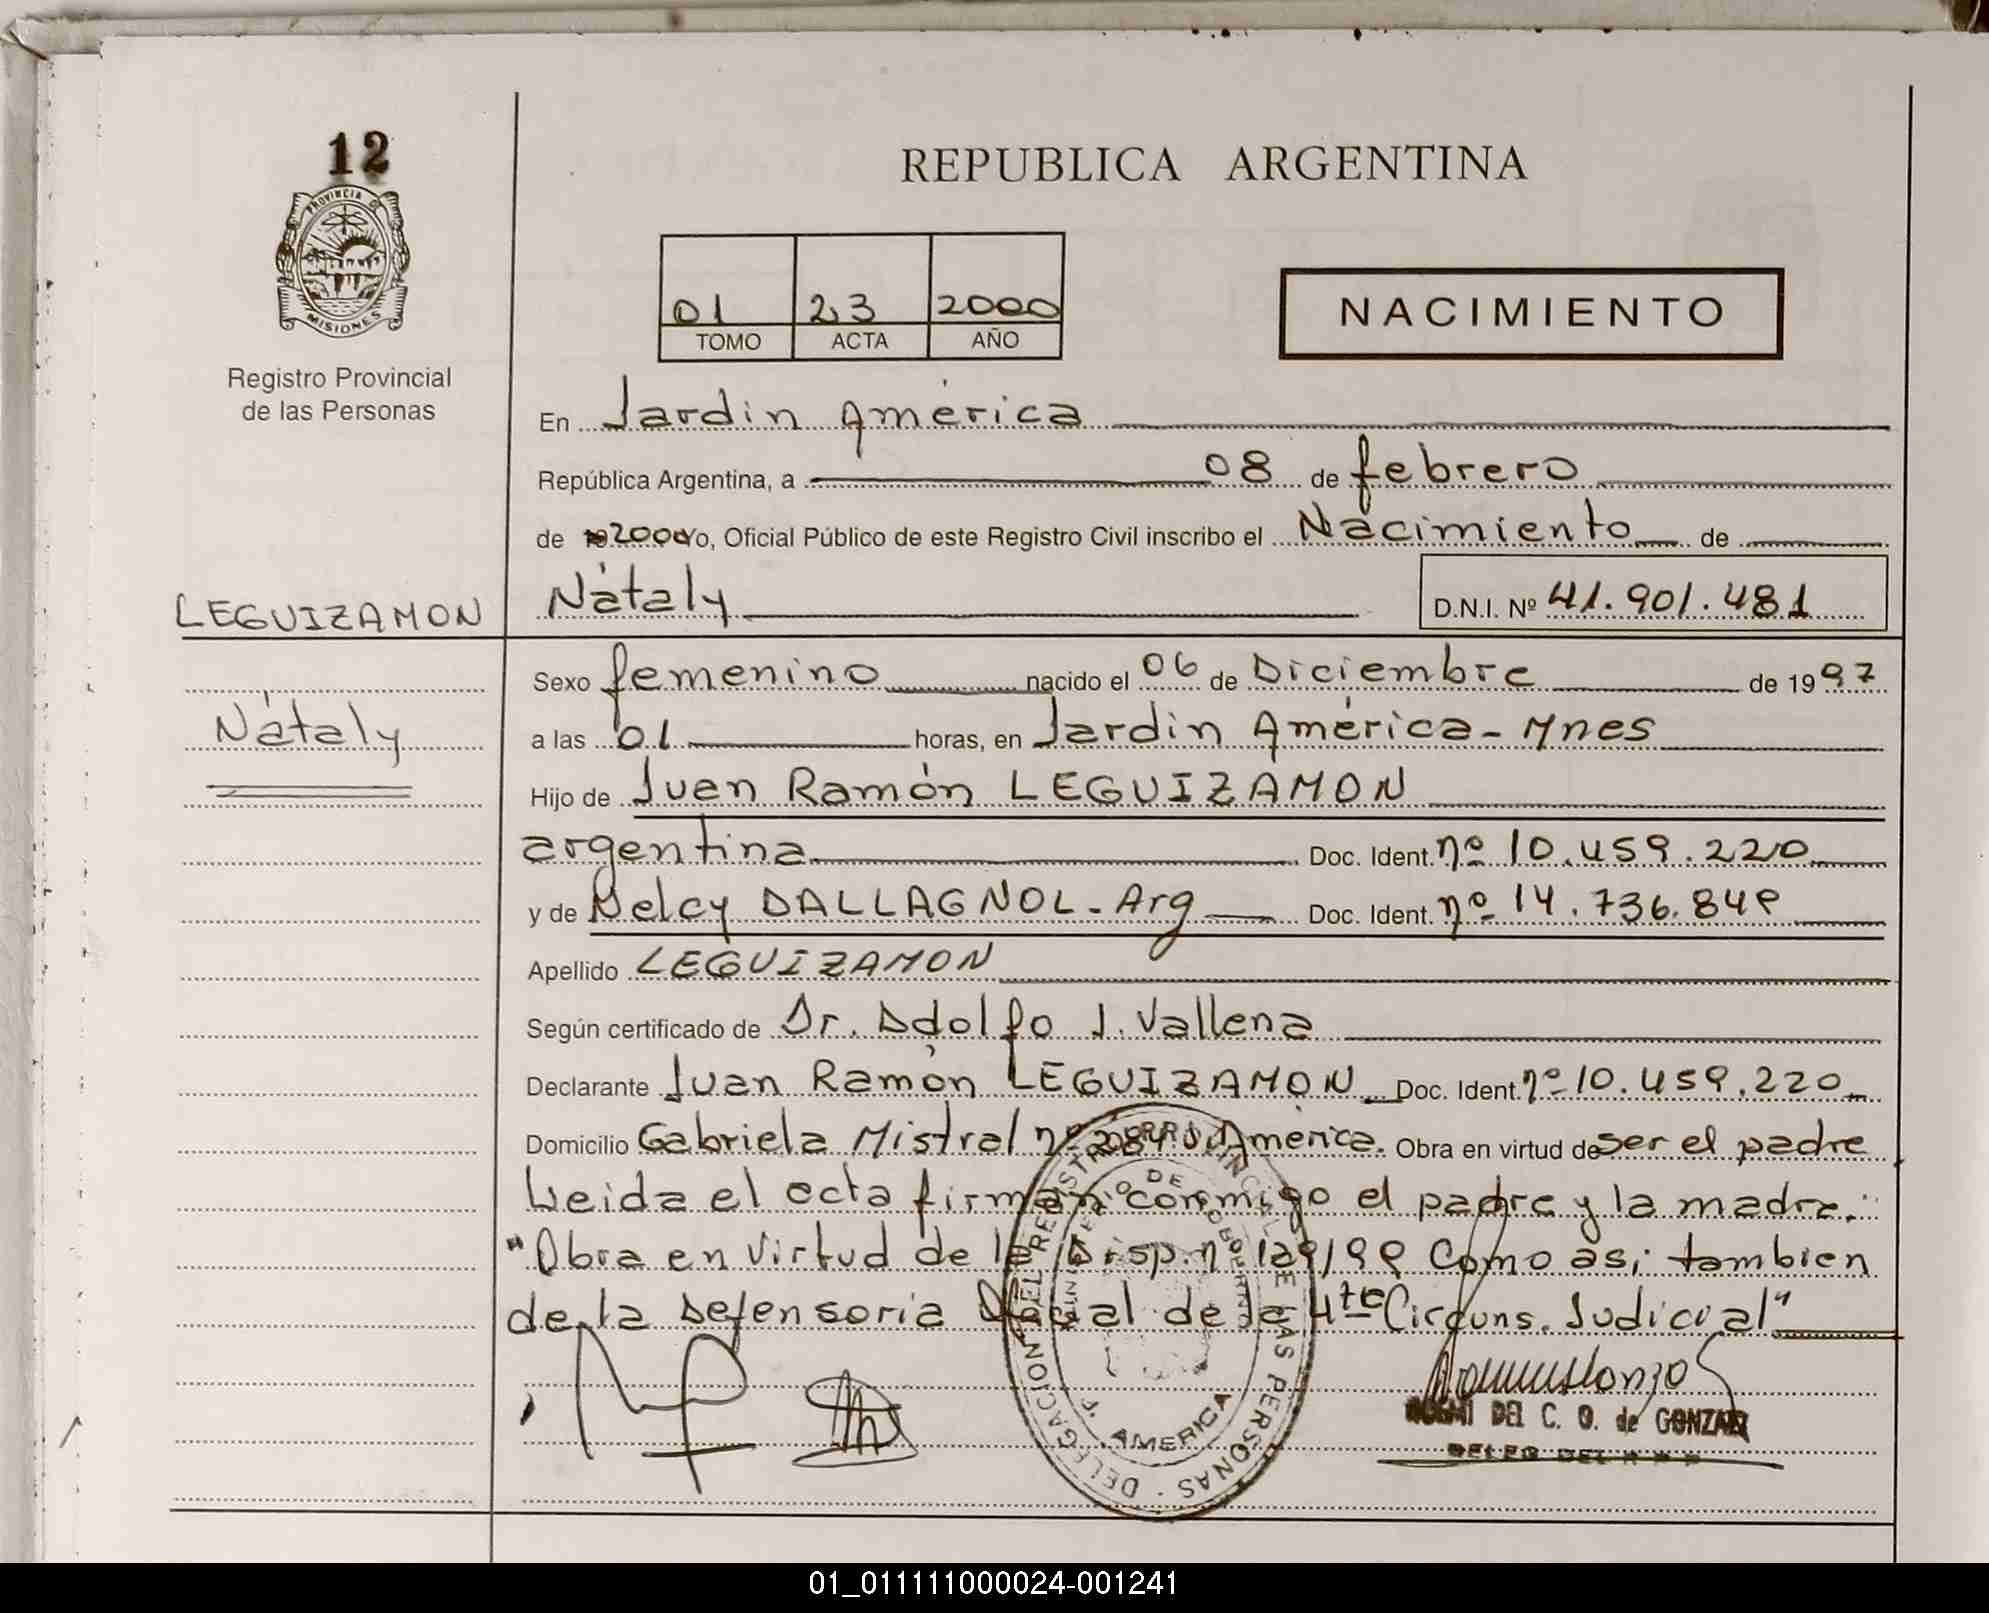 12
PROVINCIA D
MISIONES
Registro Provincial
de las Personas
REPUBLICA ARGENTINA
01 23 2000
TOMO ACTA AÑO
NACIMIENTO
En Jardín América
República Argentina, a 08 de febrero
de 2000 Yo, Oficial Público de este Registro Civil inscribo el Nacimiento de
Nátaly D.N.I. Nº 41.901.481
LEGUIZAMON
Nátaly
Sexo femenino nacido el 06 de Diciembre de 1997
a las 01 horas, en Jardín América - Mnes
Hijo de Juan Ramón LEGUIZAMON
argentina Doc. Ident. nº 10.459.220
y de Nelcy DALLAGNOL - Arg Doc. Ident. nº 14.736.849
Apellido LEGUIZAMON
Según certificado de Dr. Adolfo J. Vallena
Declarante Juan Ramón LEGUIZAMON Doc. Ident. nº 10.459.220
Domicilio Gabriela Mistral nº 2084 Jd América. Obra en virtud de ser el padre
Leida el acta firman conmigo el padre y la madre.
"Obra en virtud de la Disp. nº 129/99 Como asi tambien
de la Defensoria Oficial de la 4ta Circuns. Judicial"
DELEGACION DEL REGISTRO PROVINCIAL DE LAS PERSONAS
MINISTERIO DE GOBIERNO
J. AMERICA
DEL C. O. de GONZALEZ
01_011111000024-001241